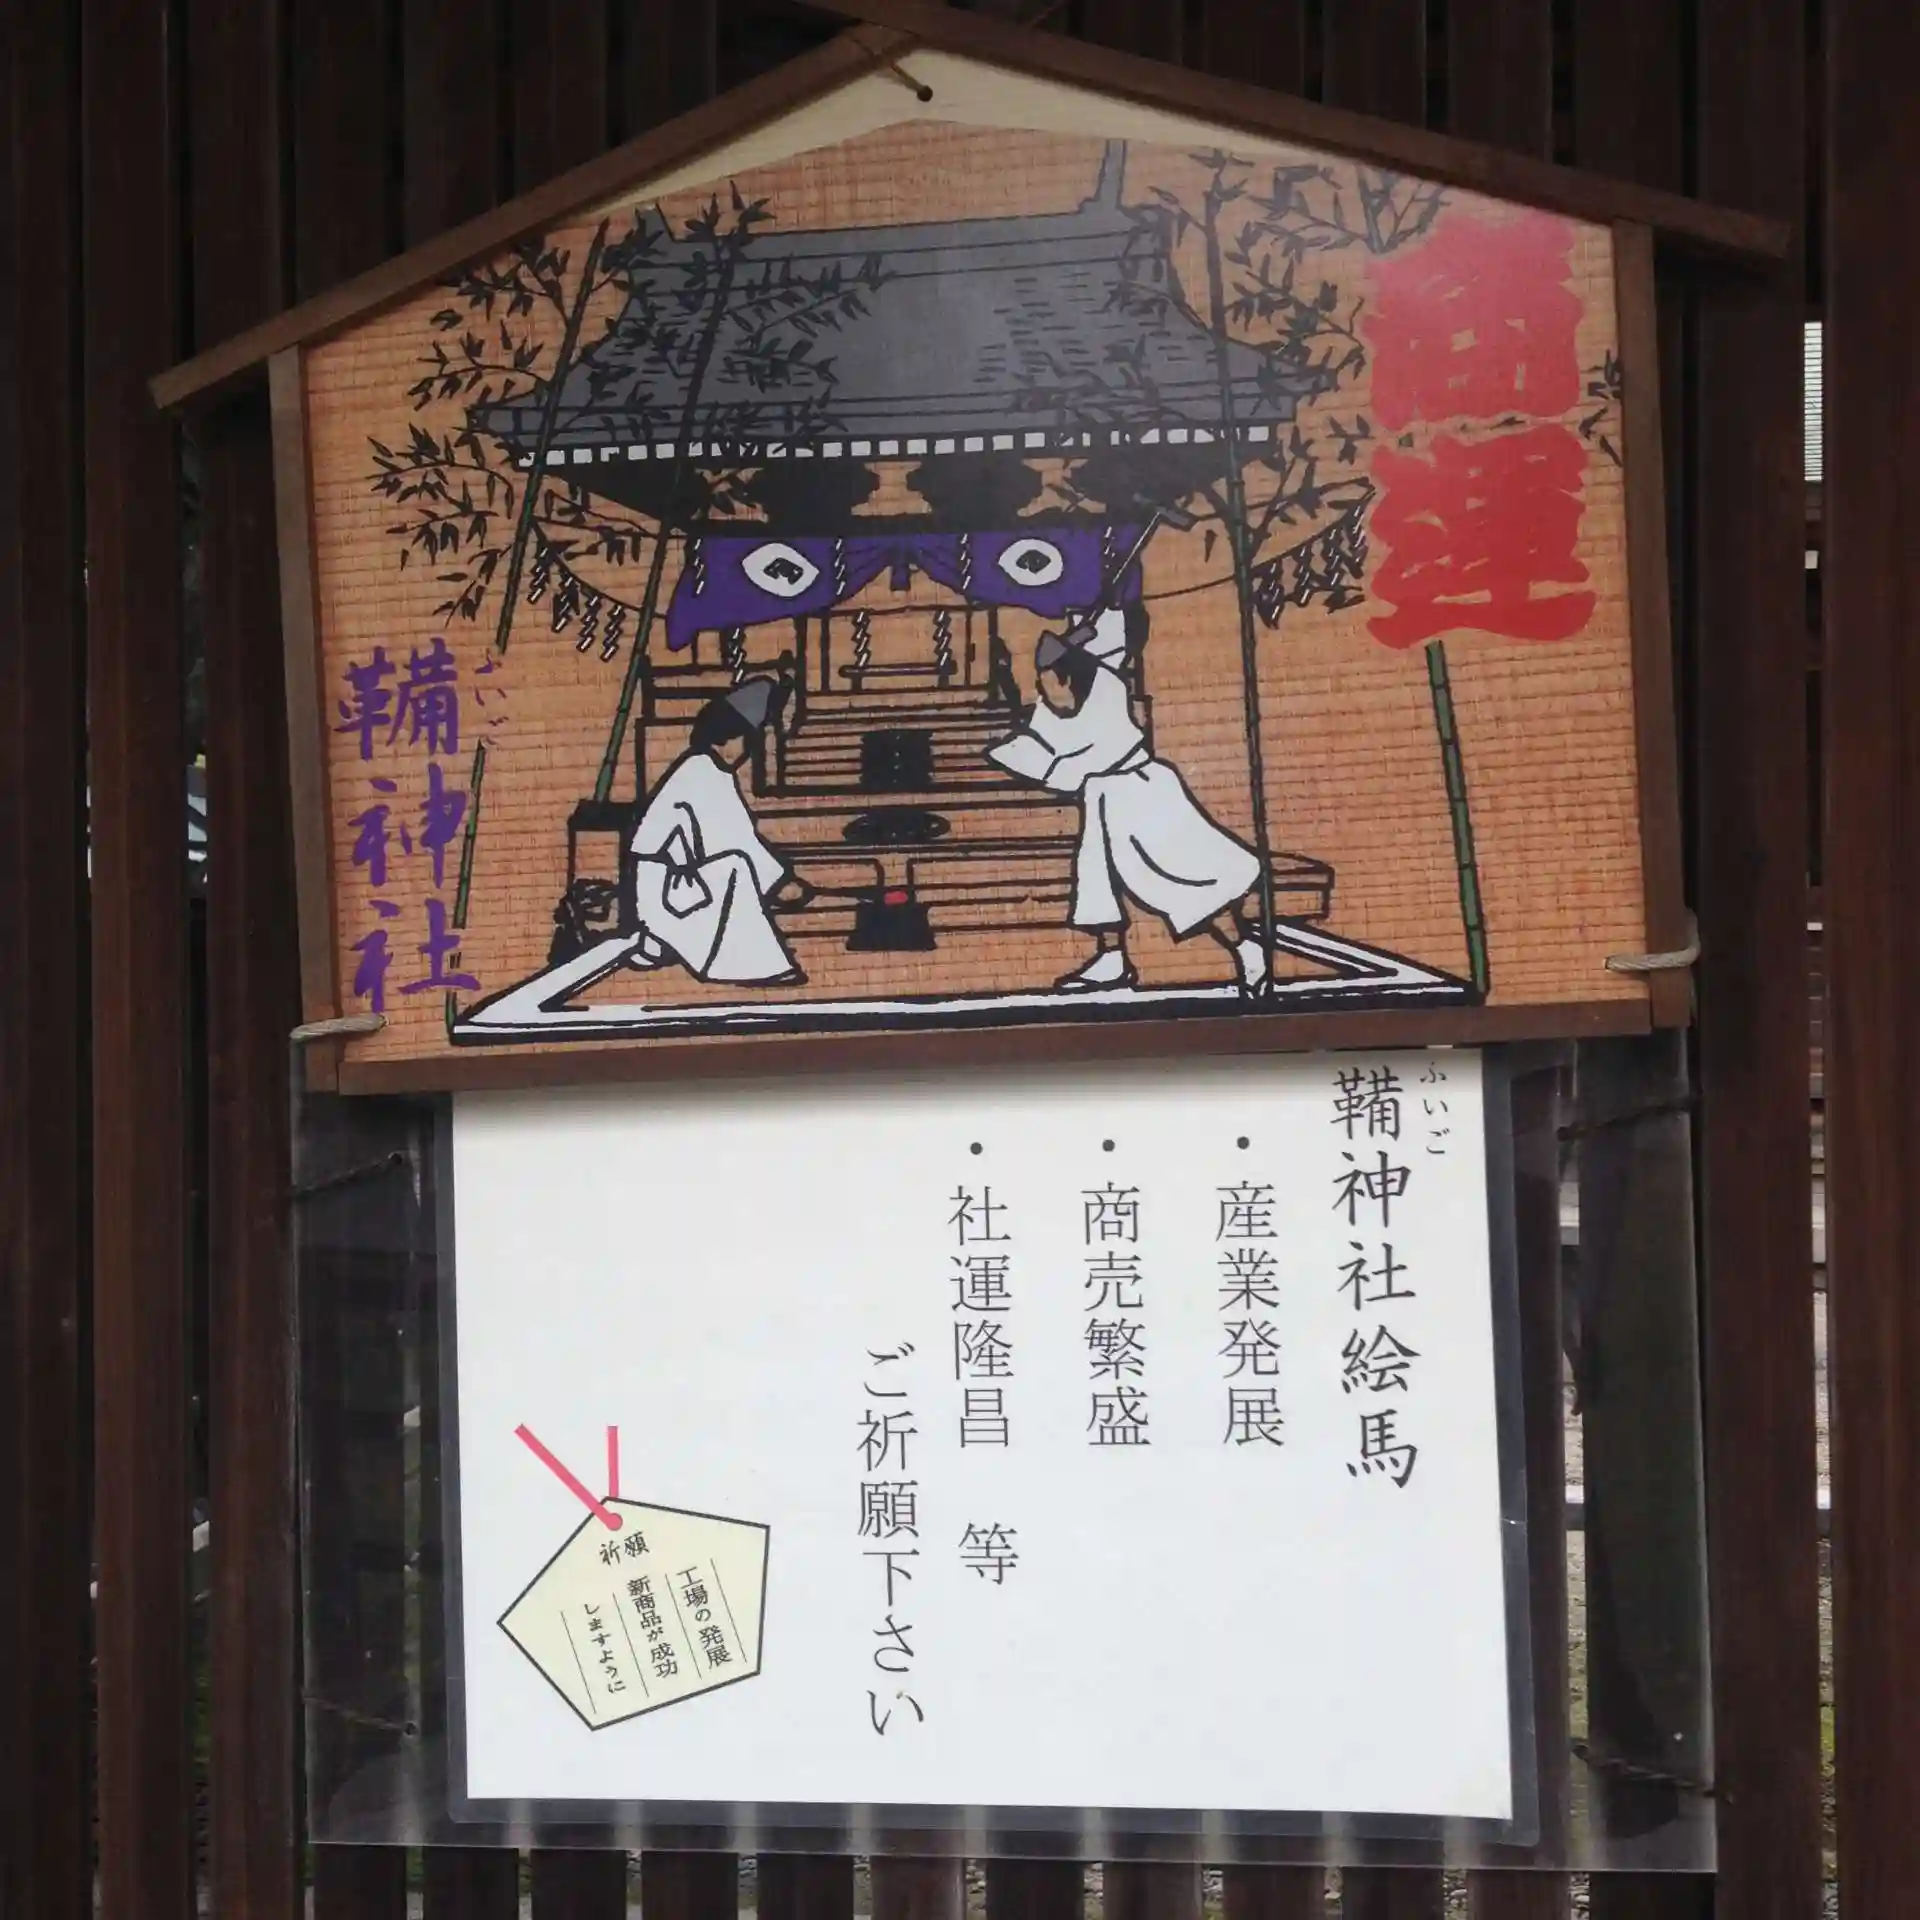 商運
ふいご
鞴神社
ふいご
鞴神社絵馬
・産業発展
・商売繁盛
・社運隆昌 等
ご祈願下さい
祈願
工場の発展
新商品が成功
しますように